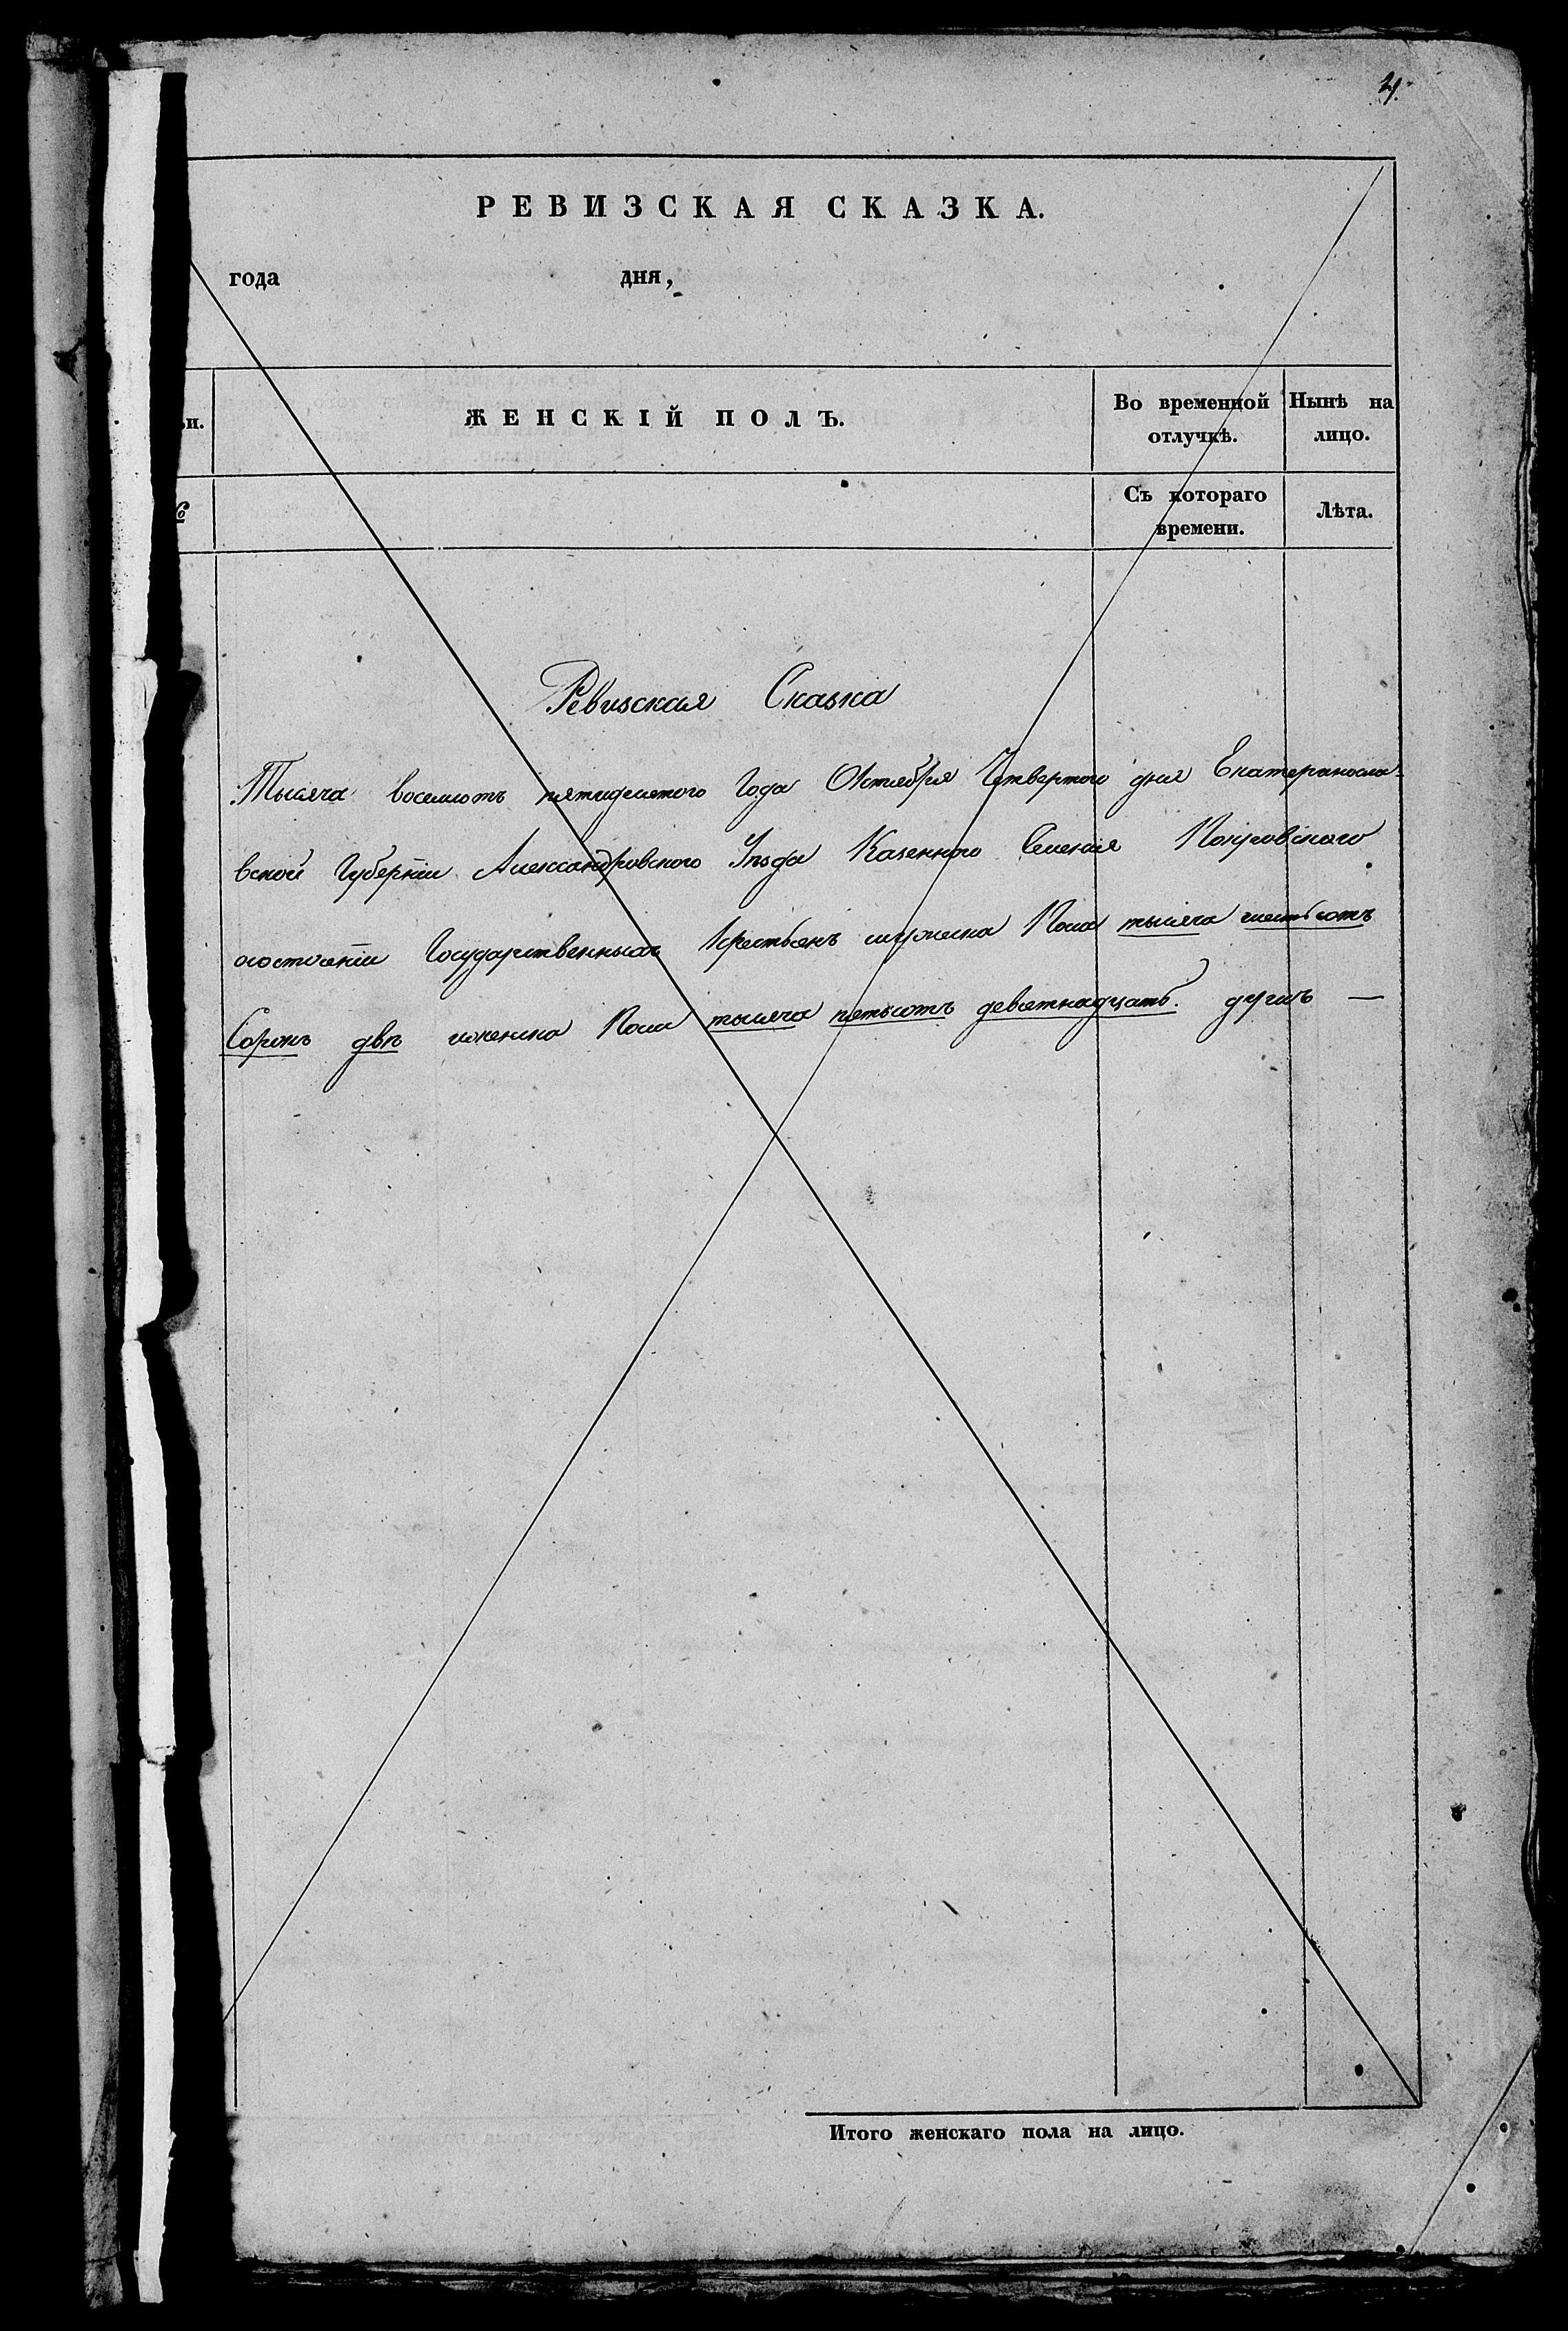 РЕВИЗСКАЯ СКАЗКА.
года дня,
ЖЕНСКІЙ ПОЛЪ.
Во временной отлучкѣ.
Нынѣ на лицо.
Съ котораго времени.
Лѣта.
Ревизская Сказка
Тысяча восемьсотъ пятидесятого Года Октября Четвертого дня Екатериносла-
вской Губерніи Александровского Уѣзда Казенного Селенія Покровского
осостояніи Государственныхъ Крестьянъ мужеска Пола тысяча шестьсотъ
Сорокъ двѣ иженска Пола тысяча пятьсотъ девятнадцать. душъ —
Итого женскаго пола на лицо.